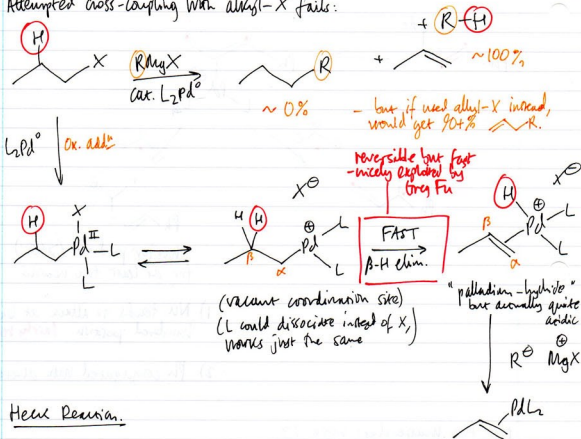 Attempted cross-coupling with alkyl-X fails:
+ R-H
H
X
RMgX
cat. L2Pd⁰
R
+
~100%
~0%
- but, if used allyl-X instead,
would get 90+% R.
L2Pd⁰
Ox. addⁿ
reversible but fast
- nicely exploited by
Greg Fu
X⊖
X⊖
H
X
PdII
L
L
H H
β
α
⊕
Pd
L
L
FAST
β-H elim.
H
⊕
Pd
L
L
β
α
(vacant coordination site)
(L could dissociate instead of X,
works just the same)
"palladium-hydride"
but actually quite
acidic
R⊖ ⊕MgX
PdL2
Heck Reaction.